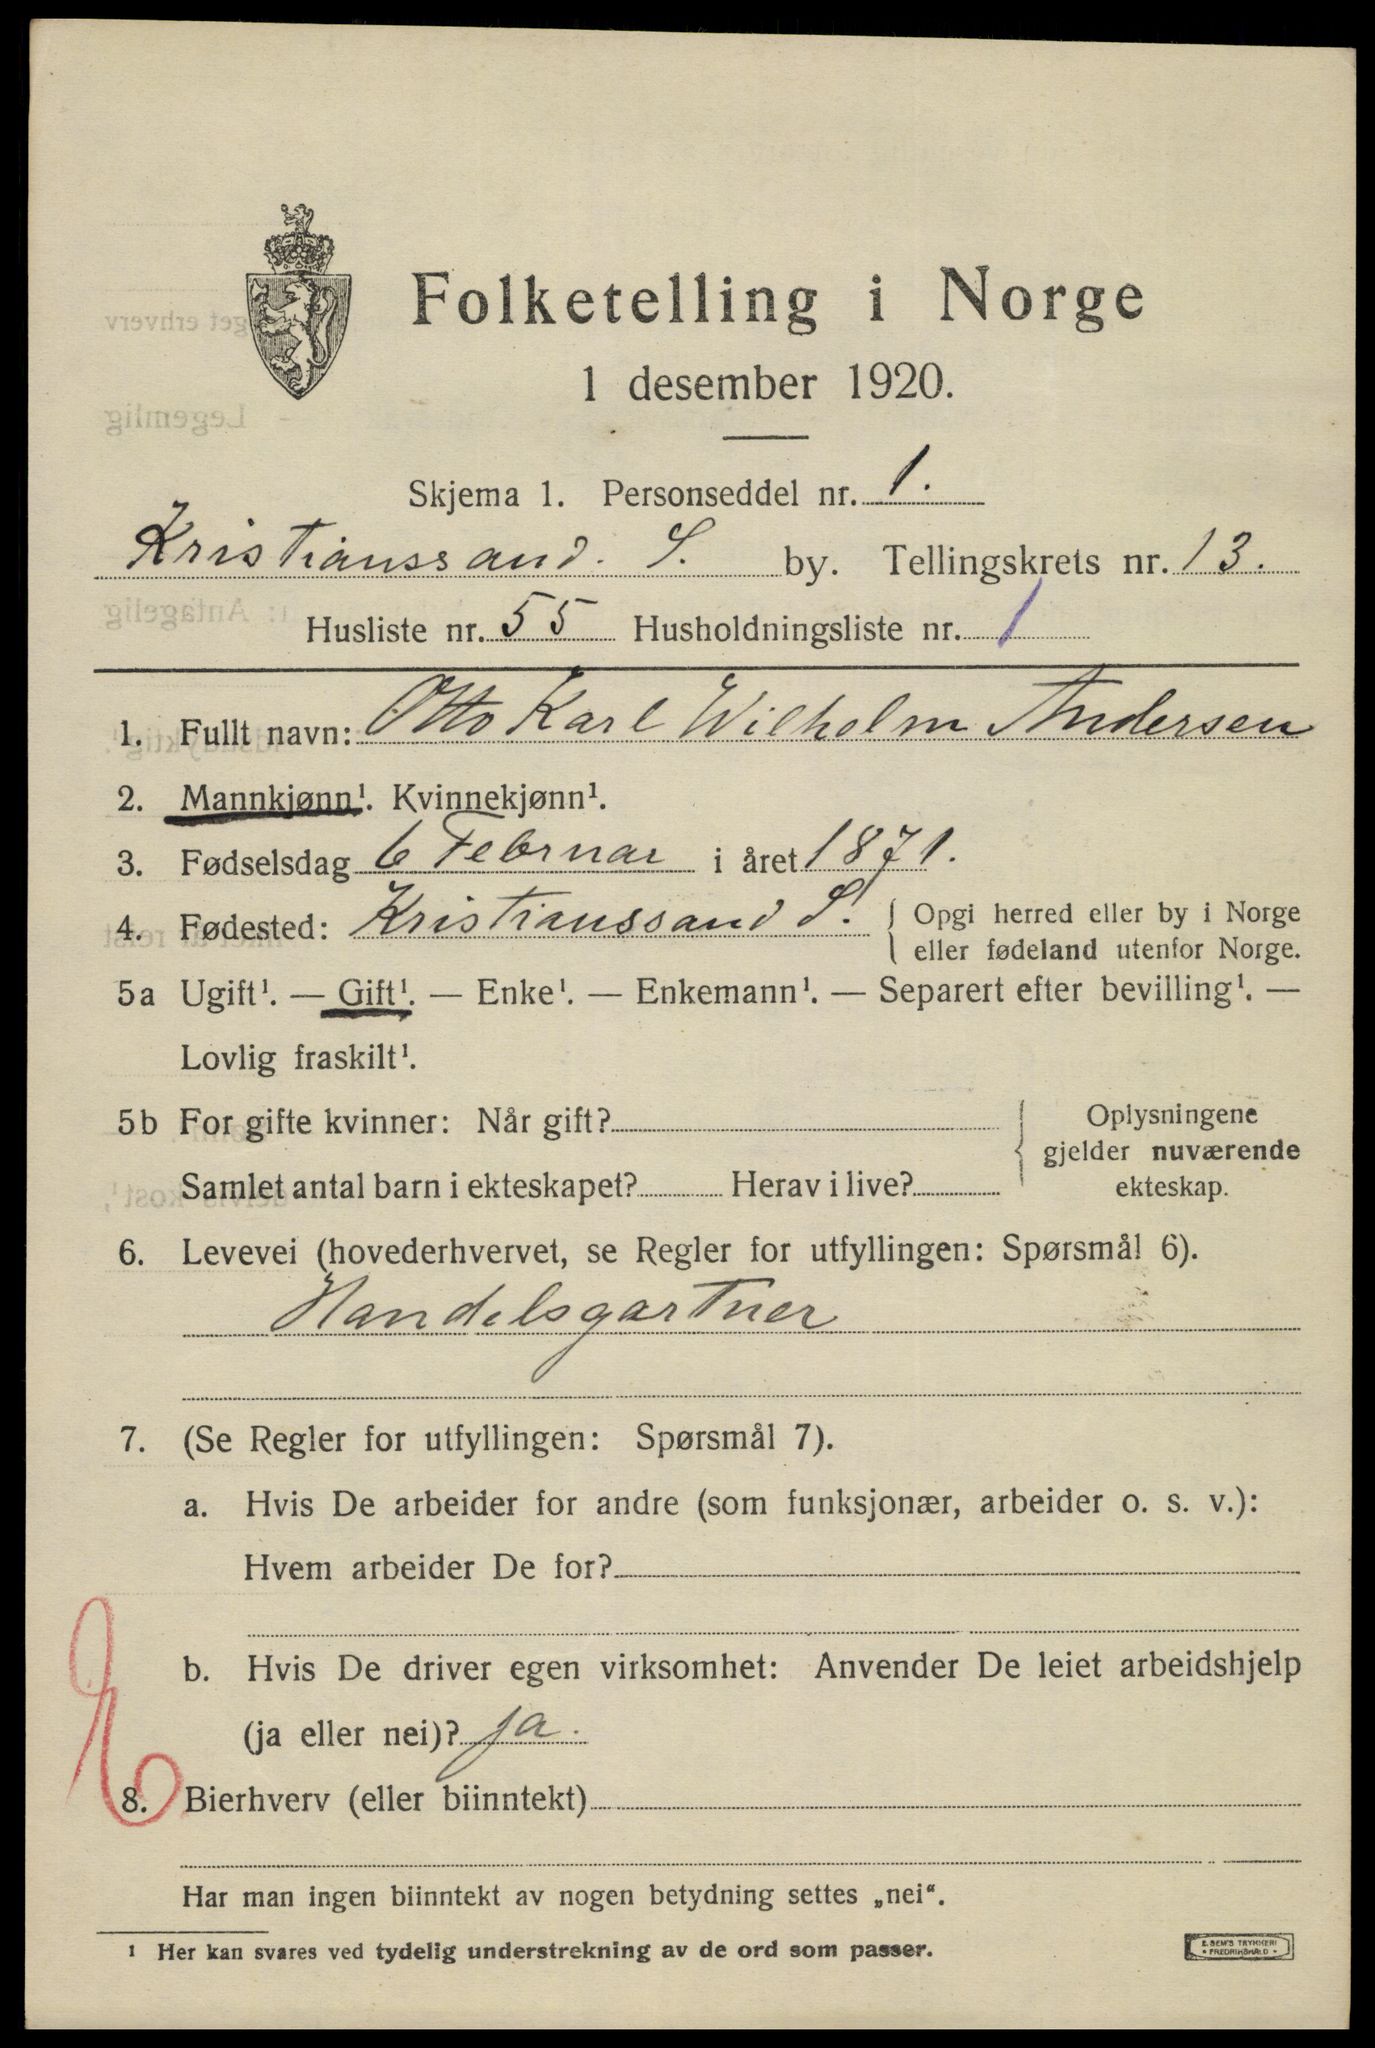 Folketelling i Norge
1 desember 1920.
Skjema 1. Personseddel nr. 1.
Kristianssand. S. by. Tellingskrets nr. 13.
Husliste nr. 55 Husholdningsliste nr. 1
1. Fullt navn: Otto Karl Wilhelm Andersen
2. Mannkjønn¹. Kvinnekjønn¹.
3. Fødselsdag 6 Februar i året 1871.
4. Fødested: Kristianssand S. { Opgi herred eller by i Norge
eller fødeland utenfor Norge.
5a Ugift¹. — Gift¹. — Enke¹. — Enkemann¹. — Separert efter bevilling¹. —
Lovlig fraskilt¹.
5b For gifte kvinner: Når gift?
Samlet antal barn i ekteskapet? Herav i live?
Oplysningene
gjelder nuværende
ekteskap.
6. Levevei (hovederhvervet, se Regler for utfyllingen: Spørsmål 6).
Handelsgartner
7. (Se Regler for utfyllingen: Spørsmål 7).
a. Hvis De arbeider for andre (som funksjonær, arbeider o. s. v.):
Hvem arbeider De for?
b. Hvis De driver egen virksomhet: Anvender De leiet arbeidshjelp
(ja eller nei)? ja.
8. Bierhverv (eller biinntekt)
Har man ingen biinntekt av nogen betydning settes „nei“.
¹ Her kan svares ved tydelig understrekning av de ord som passer.
E. SEM'S TRYKKERI
• FREDRIKSHALD •